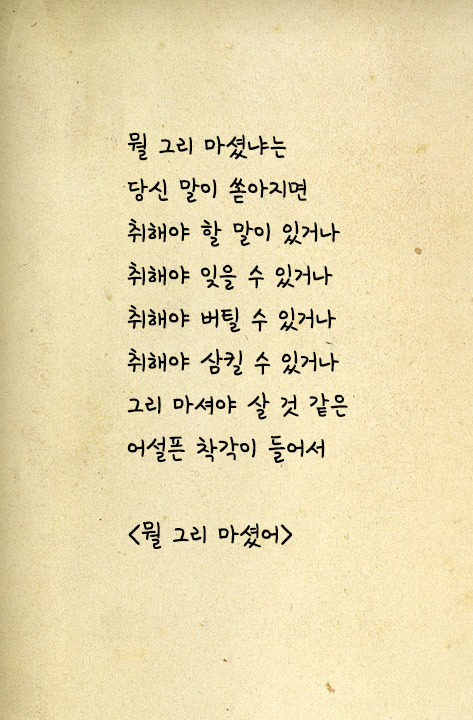 뭘 그리 마셨냐는
당신 말이 쏟아지면
취해야 할 말이 있거나
취해야 잊을 수 있거나
취해야 버틸 수 있거나
취해야 삼킬 수 있거나
그리 마셔야 살 것 같은
어설픈 착각이 들어서
<뭘 그리 마셨어>